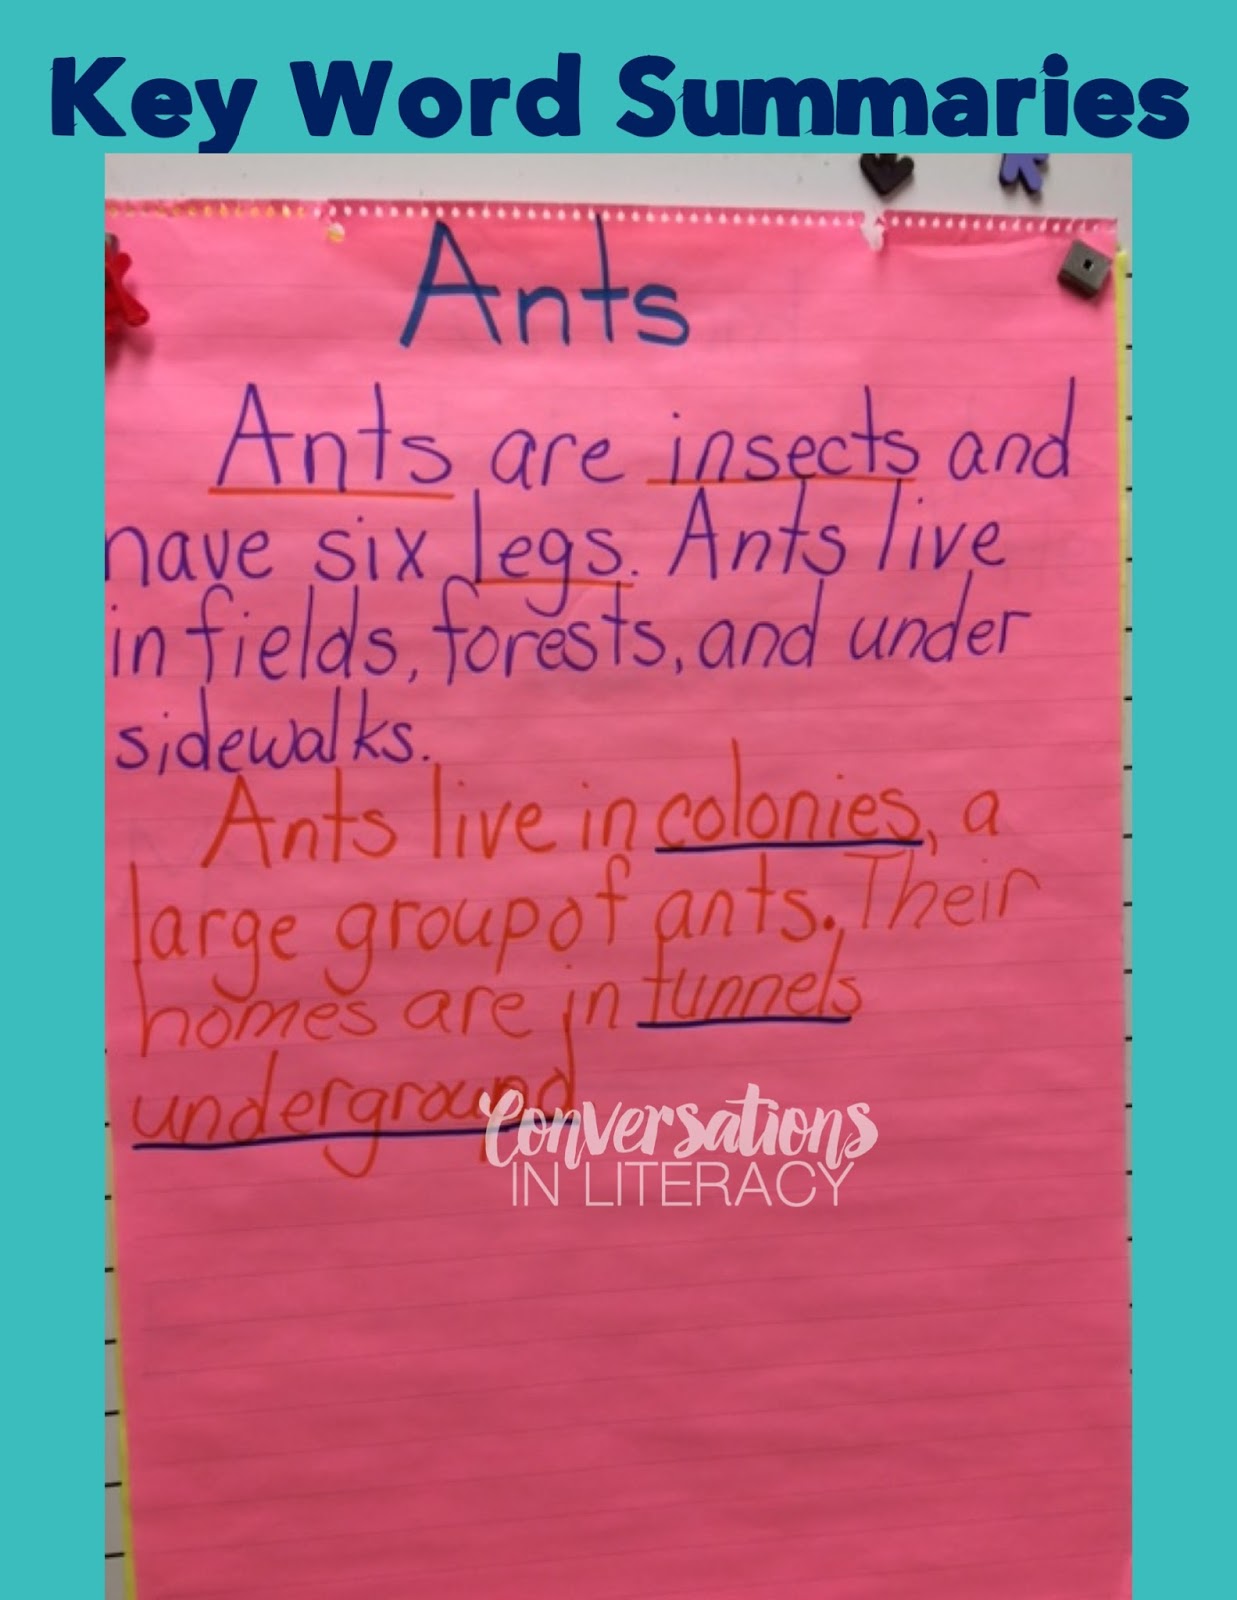 Key Word Summaries
Ants
Ants are insects and
have six legs. Ants live
in fields, forests, and under
sidewalks.
Ants live in colonies, a
large group of ants. Their
homes are in tunnels
underground
Conversations
IN LITERACY